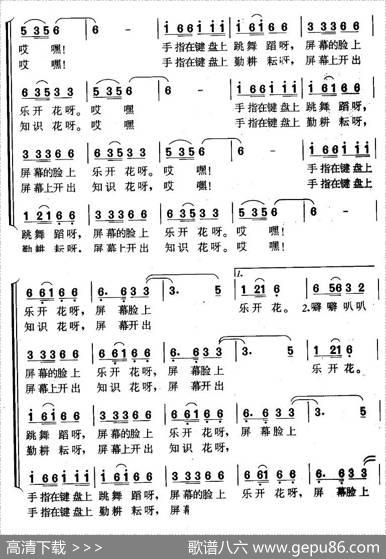 5 3 5 6 6 - i 6 6 i i i i 6 i 6 6 3 3 3 6 6
哎 嘿! 手指在键盘上 跳舞 蹈呀, 屏幕的脸上
哎 嘿! 手指在键盘上 勤耕 耘呀, 屏幕上开出
6 3 5 3 5 5 3 5 6 6 - i 6 6 i i i i 6 i 6 6
乐开 花呀。哎 嘿 手指在键盘上 跳舞 蹈呀,
知识 花呀。哎 嘿 手指在键盘上 勤耕 耘呀,
3 3 3 6 6 6 3 5 3 5 5 3 5 6 6 - i 6 6 i i i
屏幕的脸上 乐开 花呀。哎 嘿! 手指在键盘上
屏幕上开出 知识 花呀。哎 嘿! 手指在键盘上
跳舞 蹈呀, 屏幕的脸上 乐开 花呀。哎 嘿!
勤耕 耘呀, 屏幕上开出 知识 花呀。哎 嘿!
1.
6 6 i 6 6 6. 6 3 3 3. 5 1 2 1 6 6 5 6 3 2
乐开 花呀, 屏 幕脸上 乐开 花。 2.噼噼叭叭
知识 花呀, 屏 幕开出
3 3 3 6 6 6 6 i 6 6 6. 6 3 3 3. 5 1 2 1 6
屏幕的脸上 乐开 花呀, 屏 幕脸上 乐开 花。
屏幕上开出 知识 花呀, 屏 幕开出
i 6 i 6 6 3 3 3 6 6 6 6 i 6 6 6. 6 3 3 3. 5
跳舞 蹈呀, 屏幕的脸上 乐开 花呀, 屏 幕脸上
勤耕 耘呀, 屏幕上开出 知识 花呀,
i 6 6 i i i i 6 i 6 6 3 3 3 6 6 6 6 i 6 6 6. 6 3 3
手指在键盘上 跳舞 蹈呀, 屏 乐开 花呀, 屏 幕脸上
手指在键盘上 勤耕 耘呀, 屏
高清下载 >>> 歌谱八六 www.gepu86.com